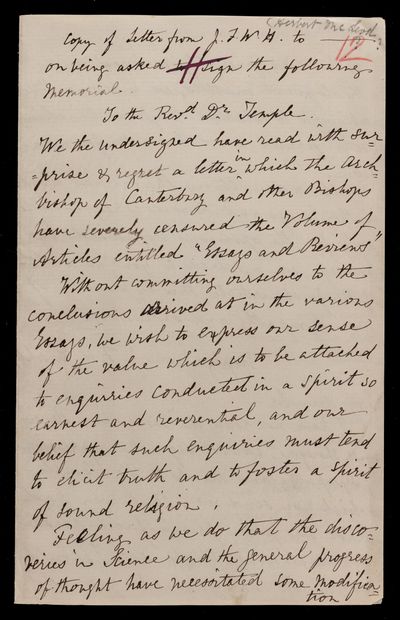 (Herbert McLeod?
Copy of Letter from J. F. W. H. to
12
on being asked to sign the following
Memorial.
To the Revd. Dr. Temple.
We the undersigned have read with sur-
=prise & regret a letter in which the Arch=
bishop of Canterbury and other Bishops
have severely censured the Volume of
Articles entitled "Essays and Reviews"
Without committing ourselves to the
conclusions arrived at in the various
Essays, we wish to express our sense
of the value which is to be attached
to enquiries conducted in a spirit so
earnest and reverential, and our
belief that such enquiries must tend
to elicit truth and to foster a spirit
of sound religion.
Feeling as we do that the disco-
veries in Science and the general progress
of thought have necessitated some modifica=
tion